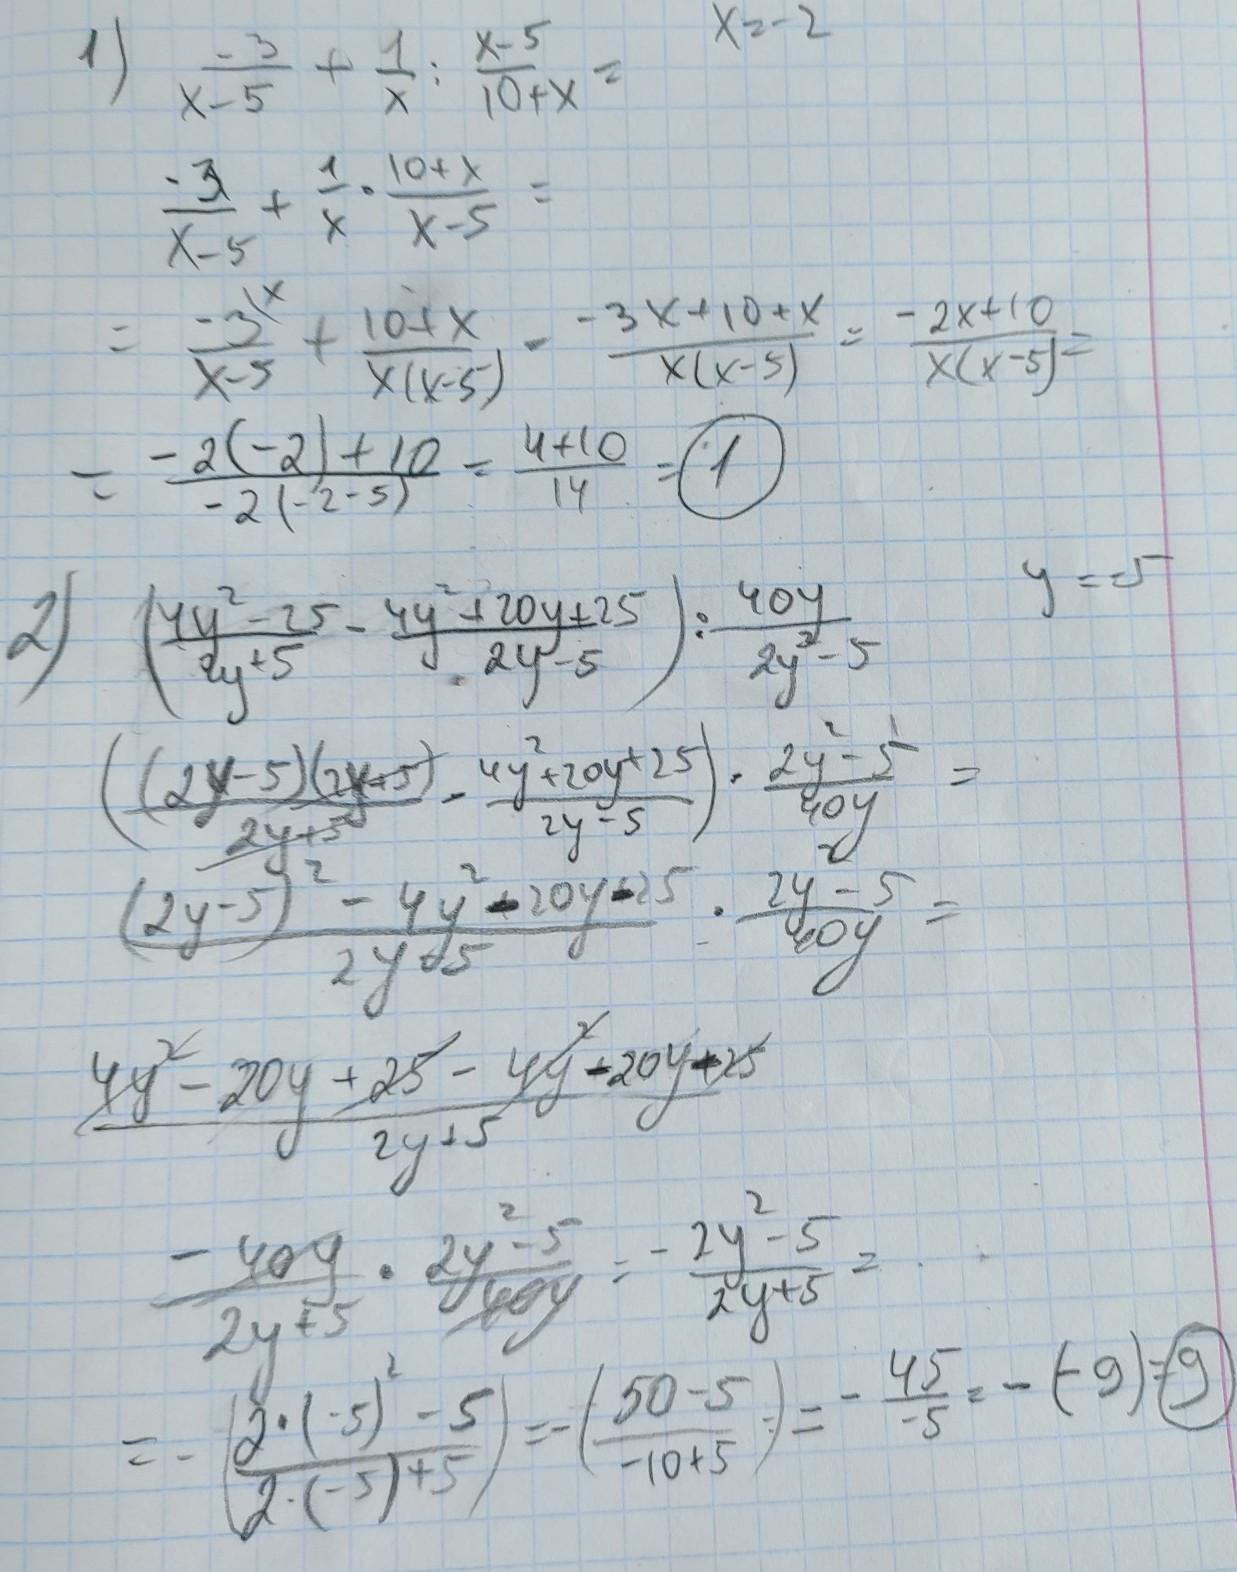 1) -3/(x-5) + 1/x : (x-5)/(10+x) = x=-2
-3/(x-5) + 1/x · (10+x)/(x-5) =
= -3\x/(x-5) + (10+x)/(x(x-5)) - (-3x+10+x)/(x(x-5)) = (-2x+10)/(x(x-5)) =
= (-2(-2)+10)/(-2(-2-5)) = (4+10)/14 = 1
2) ((4y²-25)/(2y+5) - (4y²+20y+25)/(2y-5)) : 40y/(2y²-5) y=-5
(((2y-5)(2y+5))/(2y+5) - (4y²+20y+25)/(2y-5)) · (2y²-5)/40y =
((2y-5)² - 4y² - 20y - 25)/(2y+5) · (2y²-5)/40y =
(4y² - 20y + 25 - 4y² - 20y - 25)/(2y+5)
-40y/(2y+5) · (2y²-5)/40y = - (2y²-5)/(2y+5) =
= - ((2·(-5)²-5)/(2·(-5)+5)) = - ((50-5)/(-10+5)) = - 45/-5 = - (-9) = 9